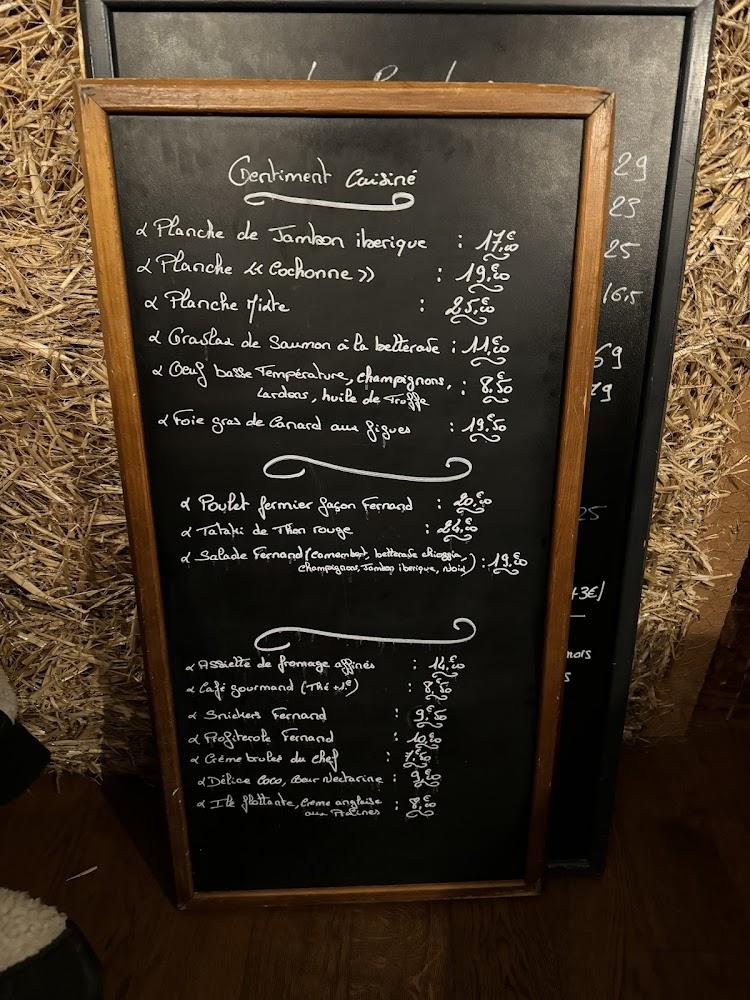 Gentiment Cuisiné
Planche de Jambon iberique : 17,€00
Planche « Cochonne » : 19,€00
Planche Mixte : 25,€00
Gravlax de Saumon à la betterave : 11,€00
Oeuf basse Température, champignons, : 8,€50
Lardons, huile de Truffe
Foie gras de Canard aux figues : 19,€50
Poulet fermier façon Fernand : 20,€00
Tataki de Thon rouge : 24,€00
Salade Fernand (camembert, betterave chioggia, : 19,€00
champignons, Jambon iberique, Noix)
Assiette de fromage affinés : 14,€00
Café gourmand (Thé +1€) : 8,€50
Snickers Fernand : 9,€50
Profiterole Fernand : 10,€00
Crème brulée du chef : 7,€50
Délice Coco, Coeur Nectarine : 9,€00
Ile flottante, Creme anglaise : 8,€00
aux Pralines
29
23
25
16,5
69
79
25
+3€)